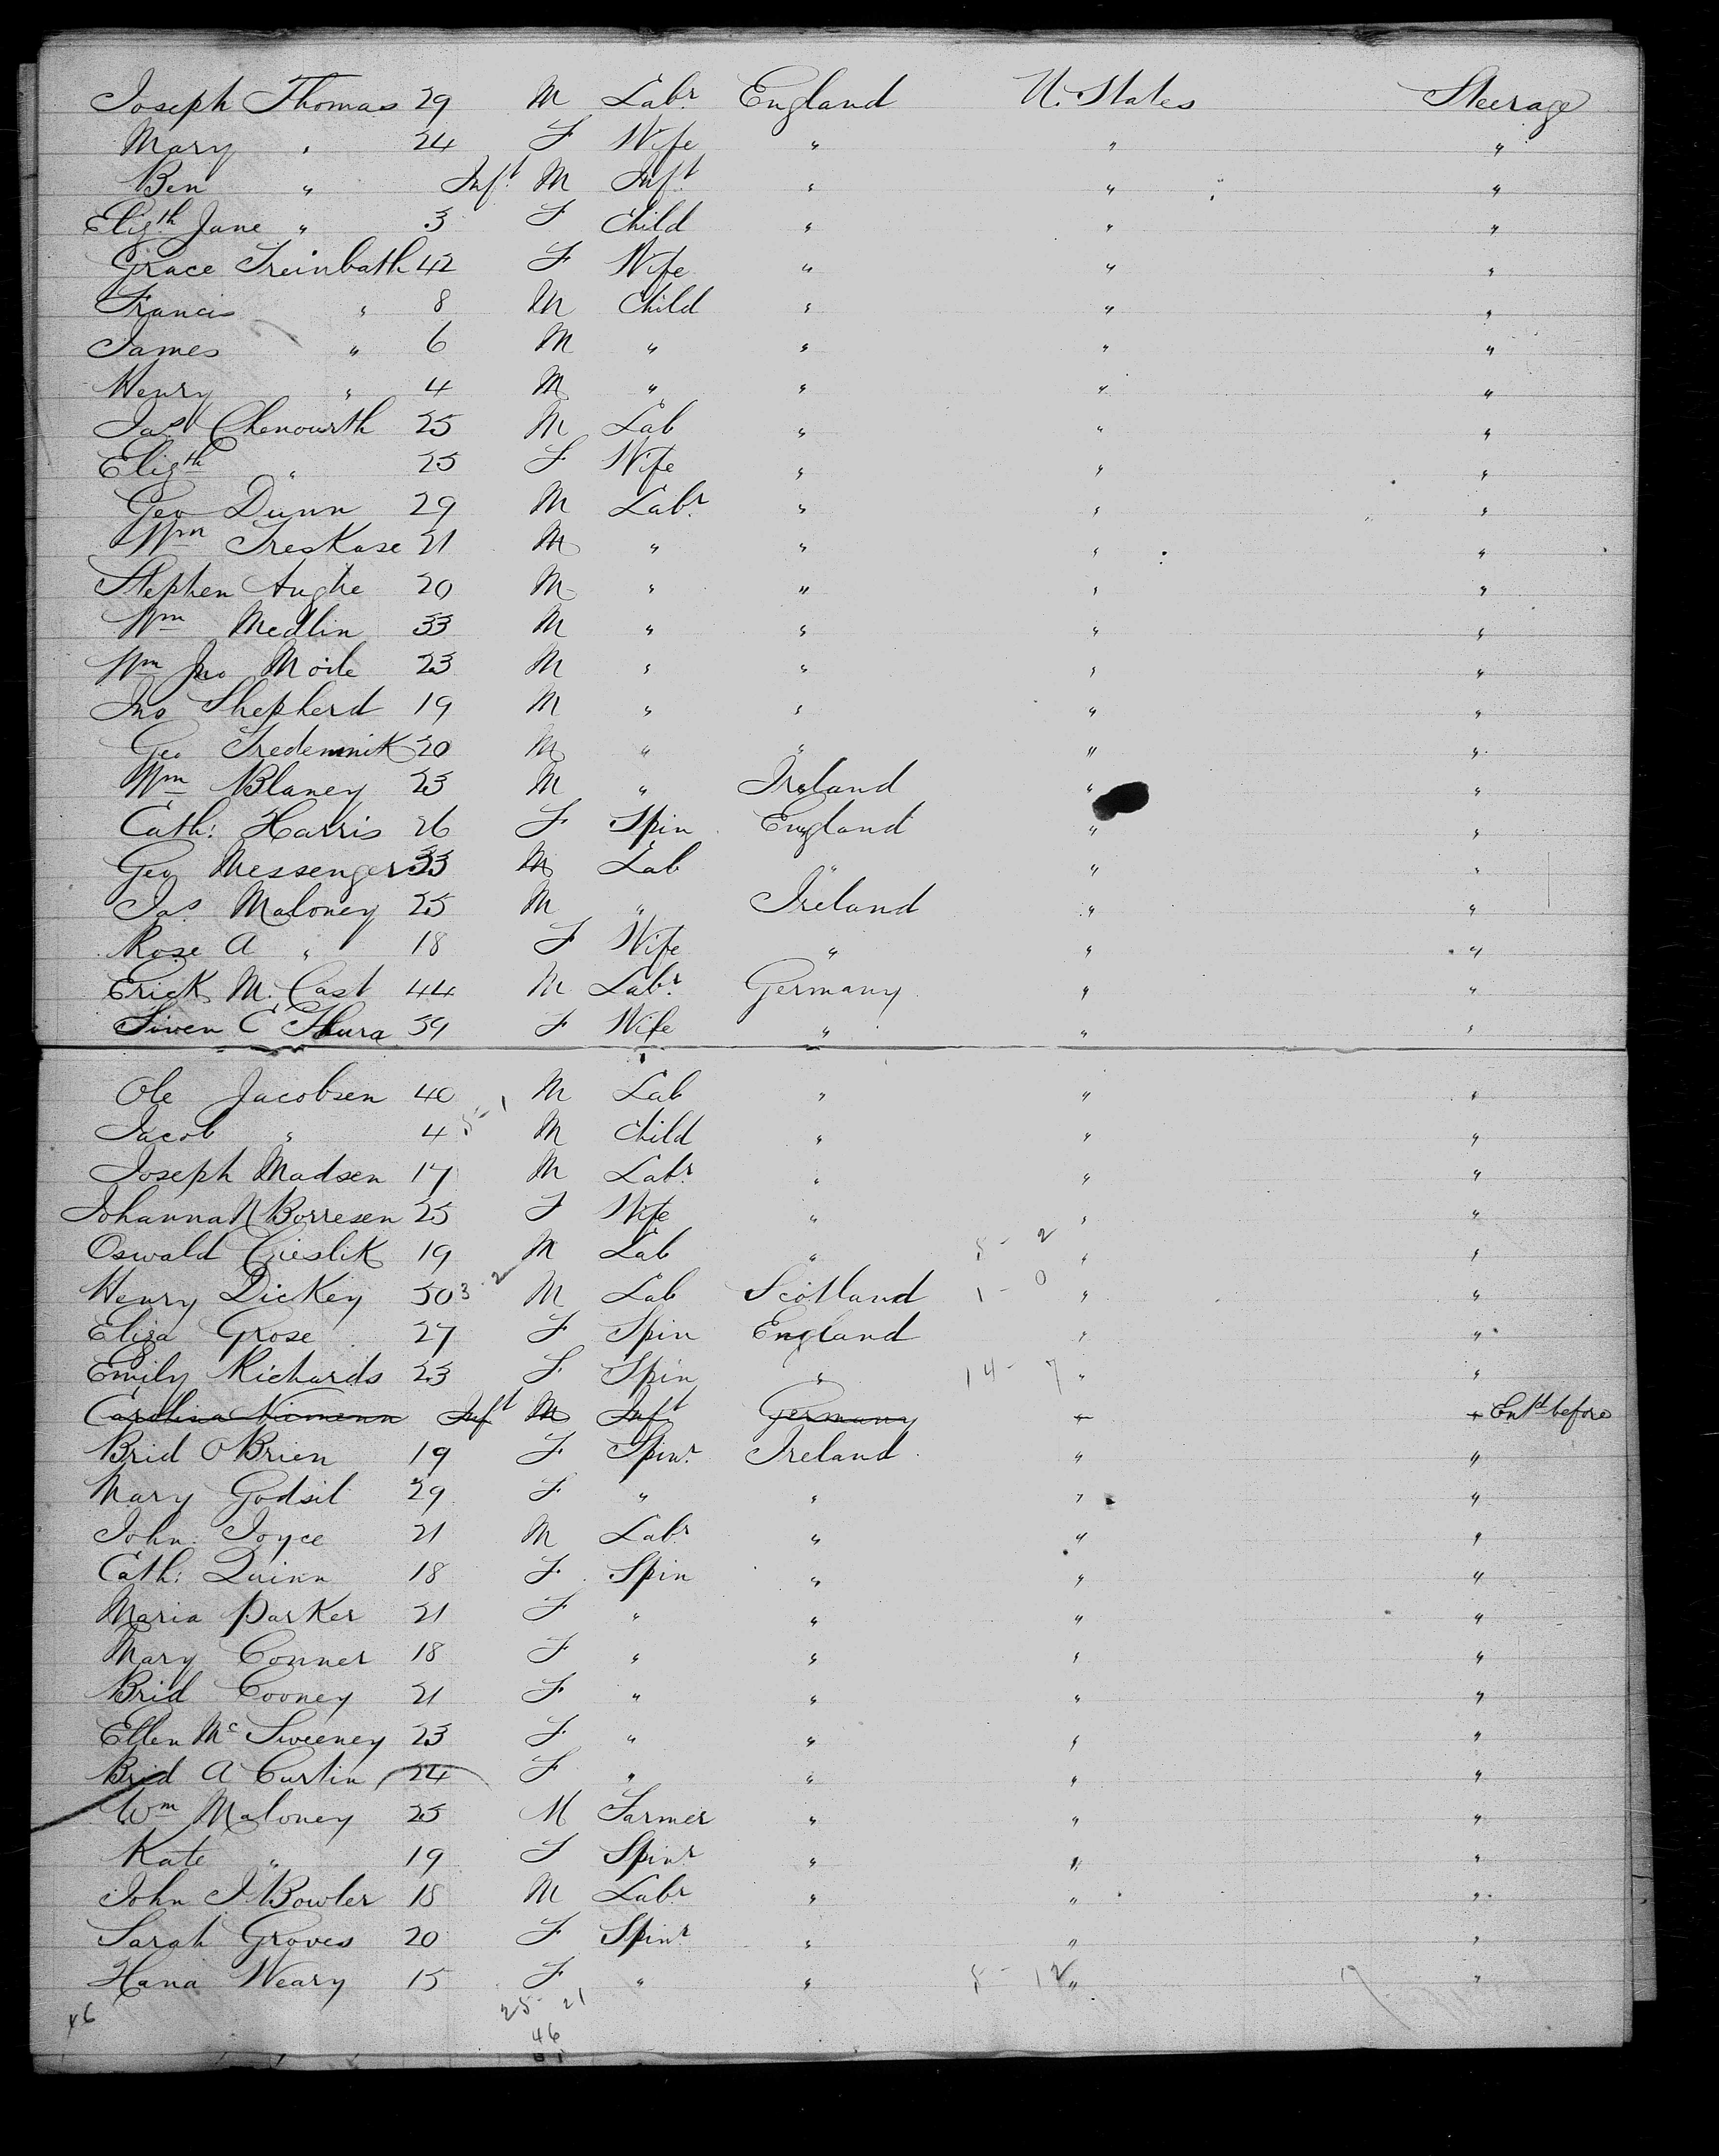 Joseph Thomas 29 M Labr. England U. States Steerage
Mary " 24 F Wife " " "
Ben " Inft. M Inft " " "
Elizth Jane " 3 F Child " " "
Grace Treinbath 42 F Wife " " "
Francis " 8 M Child " " "
James " 6 M " " " "
Henry " 4 M " " " "
Jas Chenowrth 25 M Lab " " "
Elizth " 25 F Wife " " "
Geo Dunn 29 M Labr. " " "
Wm Treskase 21 M " " " "
Stephen 20 M " " " "
Wm Medlin 33 M " " " "
Wm Jno Moile 23 M " " " "
Jno Shepherd 19 M " " " "
Geo Tredennik 20 M " " " "
Wm Blaney 23 M " Ireland " "
Cath: Harris 26 F Spin England " "
Geo Messenger 33 M Lab " " "
Jas. Maloney 25 M " Ireland " "
Rose A " 18 F Wife " " "
Erick M. Cast 44 M Labr. Germany " "
Siven C Thura 39 F Wife " " "
Ole Jacobsen 40 M Lab " " "
Jacob " 4 5-1 M Child " " "
Joseph Madsen 17 M Labr. " " "
Johanna N Borresen 25 F Wife " " "
Oswald Cieslik 19 M Lab " 5-2 " "
Henry Dickey 50 3-2 M Lab Scotland 1-0 " "
Eliza Grose 27 F Spin England " "
Emily Richards 23 F Spin " 14-7 " "
Carolina Niemann Inft M Inft Germany " " Entd before
Brid O'Brien 19 F Spinr. Ireland " "
Mary Godsil 29 F " " " "
John Joyce 21 M Labr " " "
Cath: Quinn 18 F Spin " " "
Maria Parker 21 F " " " "
Mary Conner 18 F " " " "
Brid Cooney 21 F " " " "
Ellen Mc Sweeney 23 F " " " "
Brid A Curtin 24 F " " " "
Wm Maloney 25 M Farmer " " "
Kate " 19 F Spinr " " "
John J. Bowler 18 M Labr " " "
Sarah Groves 20 F Spinr " " "
Hana Weary 15 F " " 5-12 " "
46 25-21
46